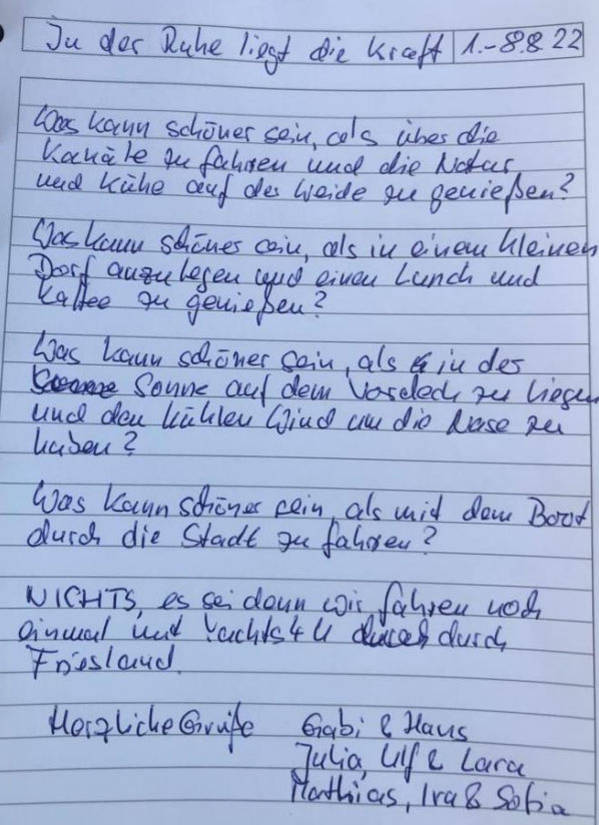 In der Ruhe liegt die Kraft 1.-8.8.22
Was kann schöner sein, als über die
Kanäle zu fahren und die Natur
und Kühe auf der Weide zu genießen?
Was kann schöner sein, als in einem kleinen
Dorf anzulegen und einen Lunch und
Kaffee zu genießen?
Was kann schöner sein, als in der
Sonne auf dem Vordeck zu liegen
und den kühlen Wind um die Nase zu
haben?
Was kann schöner sein, als mit dem Boot
durch die Stadt zu fahren?
NICHTS, es sei denn wir fahren noch
einmal mit Yachts4U durch
Friesland.
Herzliche Grüße Gabi & Hans
Julia, Ulf & Lara
Matthias, Ira & Sofia